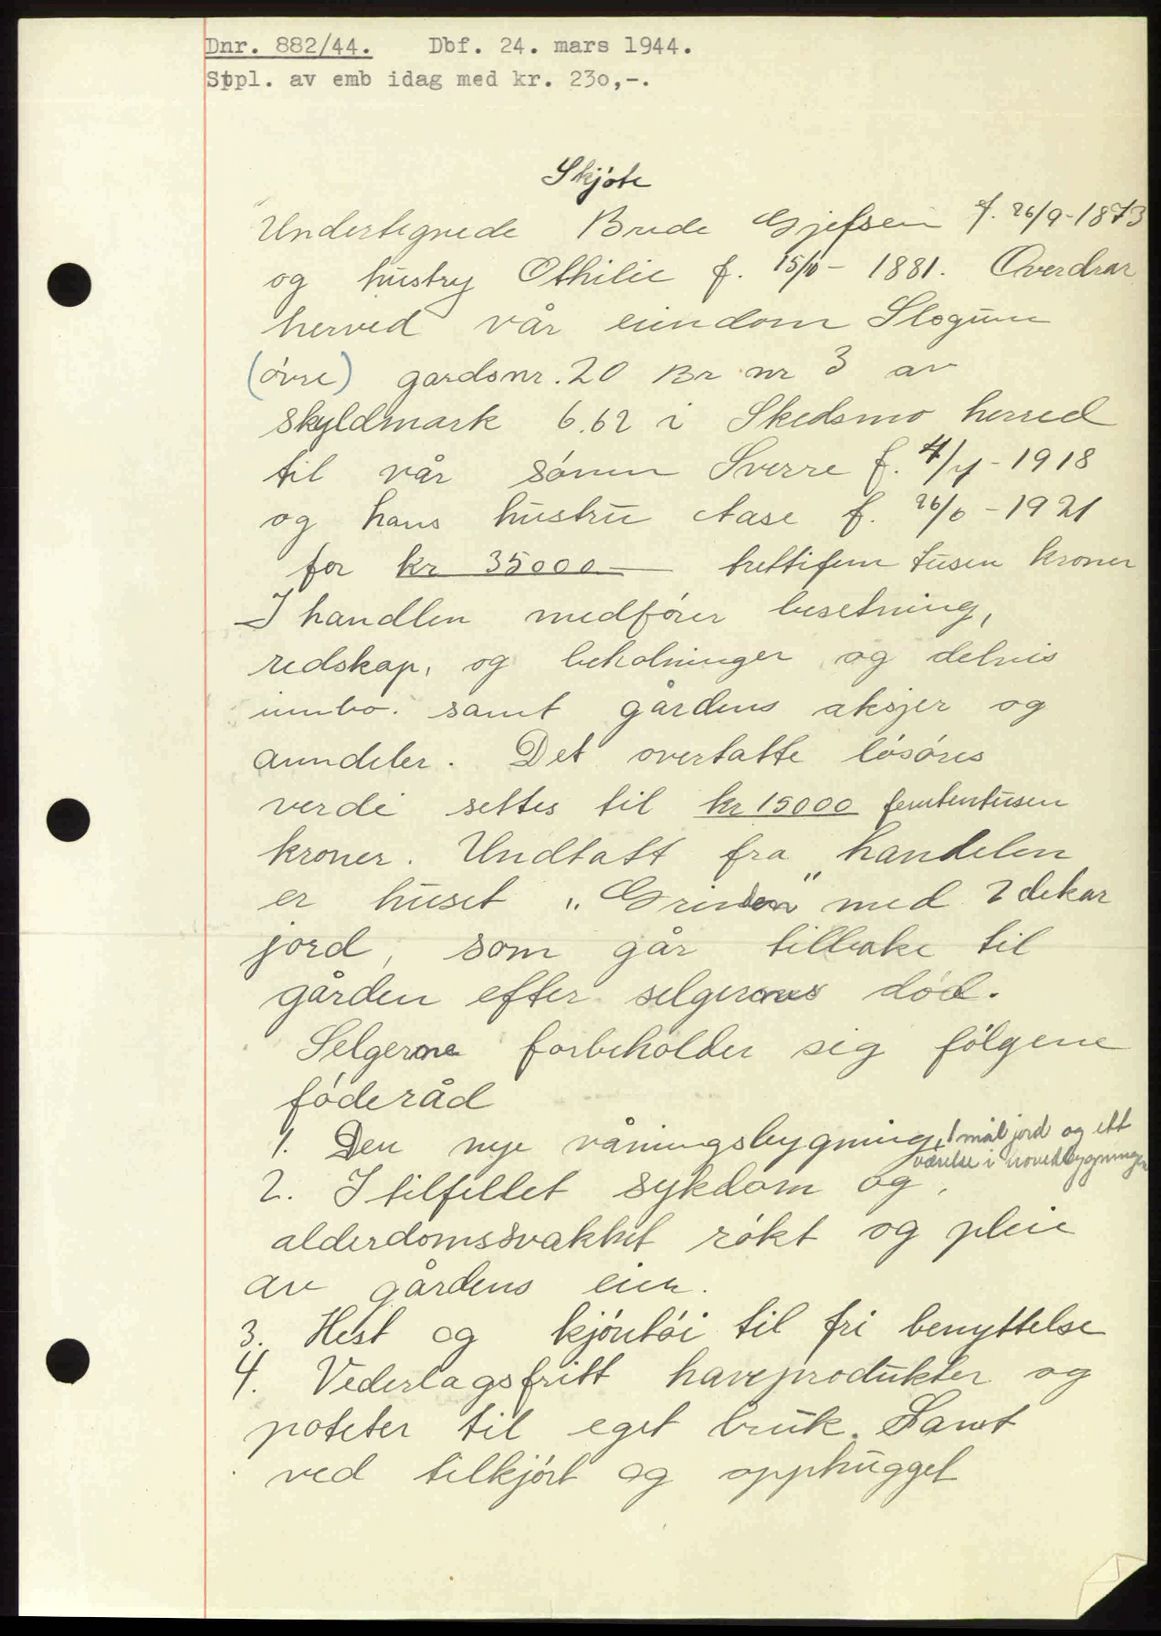 Dnr. 882/44. Dbf. 24. mars 1944.
Stpl. av emb idag med kr. 230,-.
Skjøte
Undertegnede Brede Gjefsen f. 26/9-1873
og hustry Othilie f. 15/10-1881. Overdrar
herved vår eiendom Slogum
(øvre) gardsnr. 20 Br nr 3 av
skyldmark 6.62 i Skedsmo herred
til vår sønn Sverre f. 4/4-1918
og hans hustru Aase f. 26/6-1921
for kr 35000 trettifem tusen kroner
I handlen medfører besetning,
redskap, og beholninger og delvis
innbo. samt gårdens aksjer og
anndeler. Det overtatte løsøres
verdi settes til kr 15000 femtentusen
kroner. Undtatt fra handelen
er huset "Grinden" med 2 dekar
jord, som går tilbake til
gården efter selgernes død.
Selgerne forbeholder sig følgene
føderåd
1. Den nye våningsbygning, 1 mål jord og ett
værelse i hovedbygningen
2. I tilfellet sykdom og
alderdomssvakhet røkt og pleie
av gårdens eier.
3. Hest og kjøretøi til fri benyttelse
4. Vederlagsfritt haveprodukter og
poteter til eget bruk. Samt
ved tilkjørt og opphugget